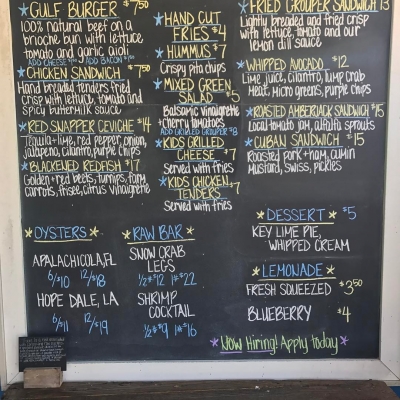 GULF BURGER $7.50
100% natural beef on a
brioche bun with lettuce
tomato and garlic aioli
ADD BACON $1.50
CHICKEN SANDWICH $7.50
Hand breaded tenders fried
crisp with lettuce, tomato and
spicy buttermilk sauce
RED SNAPPER CEVICHE $14
Tequila + lime, red pepper, onion,
jalapeno, cilantro, purple chips
BLACKENED REDFISH $17
Golden + red beets, turnips, farm
carrots, frisee, citrus vinaigrette
HAND CUT
FRIES $4
HUMMUS $7
Crispy pita chips
MIXED GREEN
SALAD $5
Balsamic vinaigrette
+ cherry tomatoes
ADD GRILLED GROUPER $8
KIDS GRILLED
CHEESE $7
Served with fries
KIDS CHICKEN
TENDERS $7
Served with fries
FRIED GROUPER SANDWICH 13
Lightly breaded and fried crisp
with lettuce, tomato and our
lemon dill sauce
WHIPPED AVOCADO $12
Lime juice, cilantro, lump crab
meat, micro greens, purple chips
ROASTED AMBERJACK SANDWICH $15
Local tomato jam, alfalfa sprouts
CUBAN SANDWICH $15
Roasted pork + ham, cumin
mustard, swiss, pickles
OYSTERS
APALACHICOLA, FL
6/$10 12/$18
HOPE DALE, LA
6/$11 12/$19
RAW BAR
SNOW CRAB
LEGS
1/2 # $12 1# $22
SHRIMP
COCKTAIL
1/2 # $9 1# $16
DESSERT $5
KEY LIME PIE,
WHIPPED CREAM
LEMONADE
FRESH SQUEEZED $3.50
BLUEBERRY $4
Now Hiring! Apply today